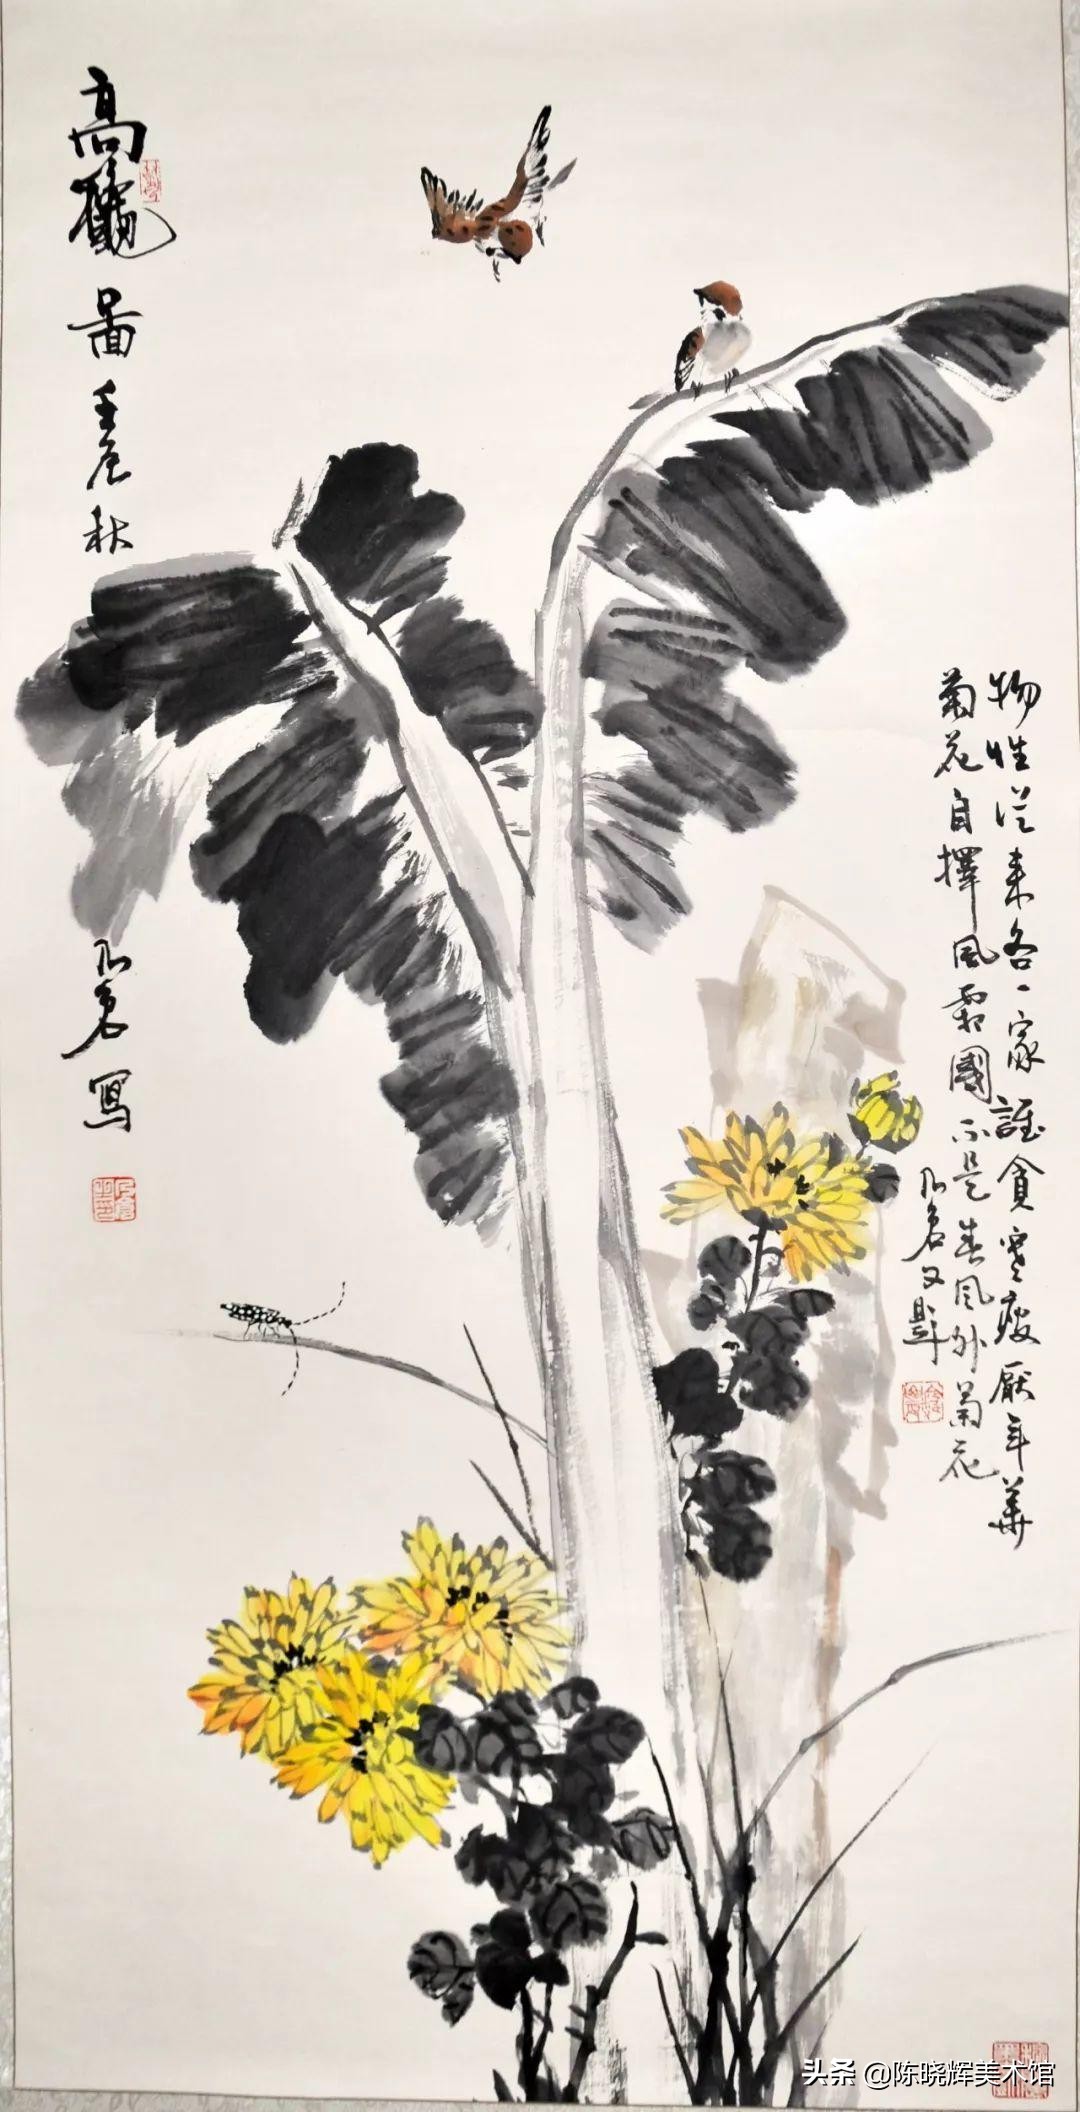 物性從来各一家誰貪寒瘦厭年華
菊花自擇風霜國不是春風外菊花
又題
高
圖
壬辰秋
寫
头条 @陈晓辉美术馆